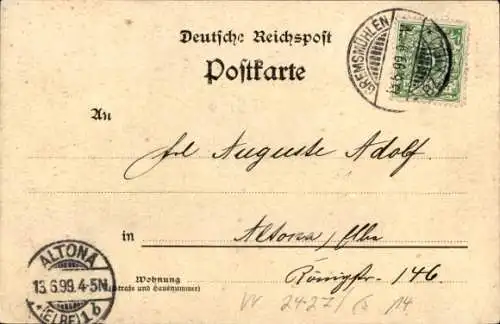 Deutsche Reichspost
Postkarte
GREMSMÜHLEN
13.6.99
An
Frl Auguste Adolf.
in
Altona / Elbe
ALTONA
13.6.99.4-5N.
*(ELBE)1b
Wohnung
(Straße und Hausnummer)
Königstr. 146.
W 2427/
14